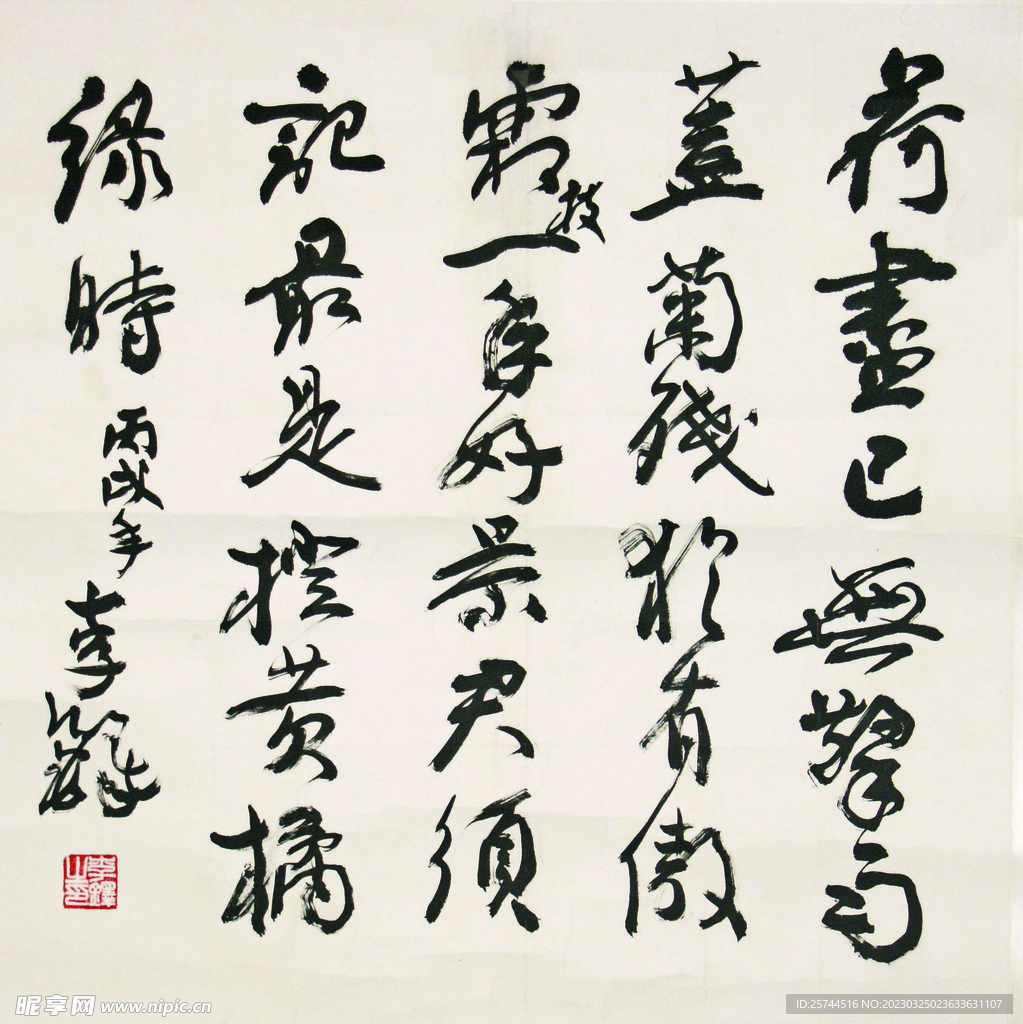 荷盡已無擎雨
蓋菊殘猶有傲
霜枝一年好景君須
記最是橙黄橘
綠時
丙戌年
李鐸
昵享网 www.nipic.cn
ID:25744516 NO:20230325023633631107